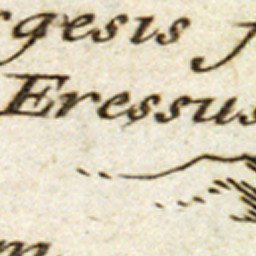 rgesis J
Eressus
m